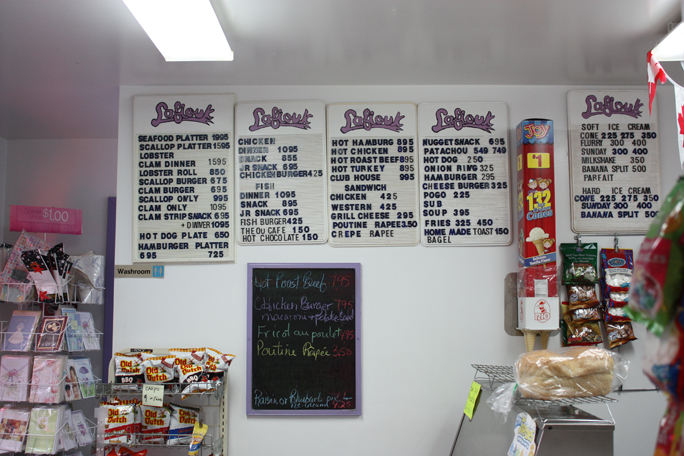 Lafiouk
SEAFOOD PLATTER 1995
SCALLOP PLATTER 1595
LOBSTER
CLAM DINNER 1595
LOBSTER ROLL 850
SCALLOP BURGER 675
CLAM BURGER 695
SCALLOP ONLY 995
CLAM ONLY 1095
CLAM STRIP SNACK 695
DINNER 1095
HOT DOG PLATE 650
HAMBURG PLATTER
695 725
Lafiouk
CHICKEN
DINNER 1095
SNACK 855
JR SNACK 695
CHICKENBURGER 425
FISH
DINNER 1095
SNACK 895
JR SNACK 695
FISH BURGER 425
THE OU CAFE 150
HOT CHOCOLATE 150
Lafiouk
HOT HAMBURG 895
HOT CHICKEN 895
HOT ROAST BEEF 895
HOT TURKEY 895
CLUB HOUSE 995
SANDWICH
CHICKEN 425
WESTERN 425
GRILL CHEESE 295
POUTINE RAPEE 350
CREPE RAPEE
Lafiouk
NUGGET SNACK 695
PATACHOU 549 749
HOT DOG 250
ONION RING 325
HAMBURGER 295
CHEESE BURGER 325
POGO 225
SUB
SOUP 395
FRIES 325 450
HOME MADE TOAST 150
BAGEL
Lafiouk
SOFT ICE CREAM
CONE 225 275 350
FLURRY 300 400
SUNDAY 300 400
MILKSHAKE 350
BANANA SPLIT 500
PARFAIT
HARD ICE CREAM
CONE 225 275 350
SUNDAY 300 400
BANANA SPLIT 500
JOY
$1
132
$1.00
Washroom
Hot Roast Beef 7.95
Chicken Burger 7.95
macaroni + potato salad
Fricot au poulet 4.95
Poutine Rapée 3.50
Raisin or Rhubarb pie
Old Dutch
BBQ
Old Dutch
Old Dutch
Old Dutch
Old Dutch